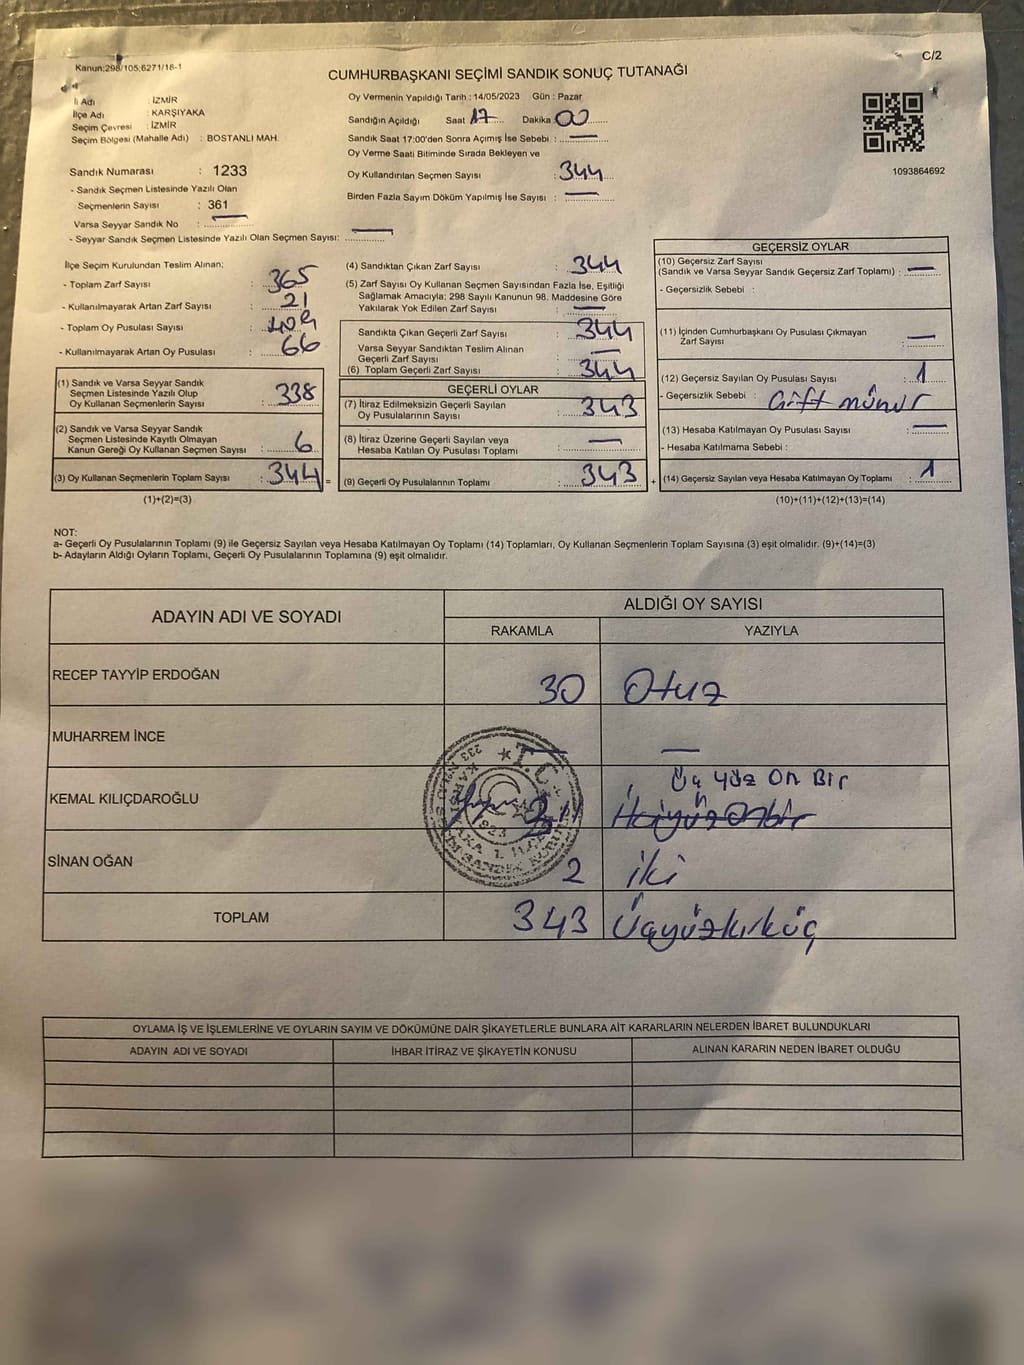 Kanun:298/105;6271/18-1
C/2
CUMHURBAŞKANI SEÇİMİ SANDIK SONUÇ TUTANAĞI
İl Adı : İZMİR
İlçe Adı : KARŞIYAKA
Seçim Çevresi : İZMİR
Seçim Bölgesi (Mahalle Adı) : BOSTANLI MAH.
Sandık Numarası : 1233
- Sandık Seçmen Listesinde Yazılı Olan
Seçmenlerin Sayısı : 361
Varsa Seyyar Sandık No : —
- Seyyar Sandık Seçmen Listesinde Yazılı Olan Seçmen Sayısı: —
Oy Vermenin Yapıldığı Tarih : 14/05/2023 Gün : Pazar
Sandığın Açıldığı Saat 17 Dakika 00
Sandık Saat 17:00'den Sonra Açımış İse Sebebi : —
Oy Verme Saati Bitiminde Sırada Bekleyen ve
Oy Kullandırılan Seçmen Sayısı : 344
Birden Fazla Sayım Döküm Yapılmış İse Sayısı : —
1093864692
İlçe Seçim Kurulundan Teslim Alınan;
- Toplam Zarf Sayısı : 365
- Kullanılmayarak Artan Zarf Sayısı : 21
- Toplam Oy Pusulası Sayısı : 409
- Kullanılmayarak Artan Oy Pusulası : 66
(1) Sandık ve Varsa Seyyar Sandık
Seçmen Listesinde Yazılı Olup
Oy Kullanan Seçmenlerin Sayısı : 338
(2) Sandık ve Varsa Seyyar Sandık
Seçmen Listesinde Kayıtlı Olmayan
Kanun Gereği Oy Kullanan Seçmen Sayısı : 6
(3) Oy Kullanan Seçmenlerin Toplam Sayısı : 344 =
(1)+(2)=(3)
(4) Sandıktan Çıkan Zarf Sayısı : 344
(5) Zarf Sayısı Oy Kullanan Seçmen Sayısından Fazla İse, Eşitliği
Sağlamak Amacıyla; 298 Sayılı Kanunun 98. Maddesine Göre
Yakılarak Yok Edilen Zarf Sayısı : —
Sandıkta Çıkan Geçerli Zarf Sayısı : 344
Varsa Seyyar Sandıktan Teslim Alınan
Geçerli Zarf Sayısı : —
(6) Toplam Geçerli Zarf Sayısı : 344
GEÇERLİ OYLAR
(7) İtiraz Edilmeksizin Geçerli Sayılan
Oy Pusulalarının Sayısı : 343
(8) İtiraz Üzerine Geçerli Sayılan veya
Hesaba Katılan Oy Pusulası Toplamı : —
(9) Geçerli Oy Pusulalarının Toplamı : 343 +
GEÇERSİZ OYLAR
(10) Geçersiz Zarf Sayısı
(Sandık ve Varsa Seyyar Sandık Geçersiz Zarf Toplamı) : —
- Geçersizlik Sebebi :
(11) İçinden Cumhurbaşkanı Oy Pusulası Çıkmayan
Zarf Sayısı : —
(12) Geçersiz Sayılan Oy Pusulası Sayısı : 1
- Geçersizlik Sebebi : Çift mühür
(13) Hesaba Katılmayan Oy Pusulası Sayısı : —
- Hesaba Katılmama Sebebi :
(14) Geçersiz Sayılan veya Hesaba Katılmayan Oy Toplamı : 1
(10)+(11)+(12)+(13)=(14)
NOT:
a- Geçerli Oy Pusulalarının Toplamı (9) ile Geçersiz Sayılan veya Hesaba Katılmayan Oy Toplamı (14) Toplamları, Oy Kullanan Seçmenlerin Toplam Sayısına (3) eşit olmalıdır. (9)+(14)=(3)
b- Adayların Aldığı Oyların Toplamı, Geçerli Oy Pusulalarının Toplamına (9) eşit olmalıdır.
ADAYIN ADI VE SOYADI ALDIĞI OY SAYISI
RAKAMLA YAZIYLA
RECEP TAYYİP ERDOĞAN 30 Otuz
MUHARREM İNCE — —
Üç Yüz On Bir
KEMAL KILIÇDAROĞLU 311 İkiyüzonbir
SİNAN OĞAN 2 iki
TOPLAM 343 Üçyüzkırküç
T.C.
1923
OYLAMA İŞ VE İŞLEMLERİNE VE OYLARIN SAYIM VE DÖKÜMÜNE DAİR ŞİKAYETLERLE BUNLARA AİT KARARLARIN NELERDEN İBARET BULUNDUKLARI
ADAYIN ADI VE SOYADI İHBAR İTİRAZ VE ŞİKAYETİN KONUSU ALINAN KARARIN NEDEN İBARET OLDUĞU